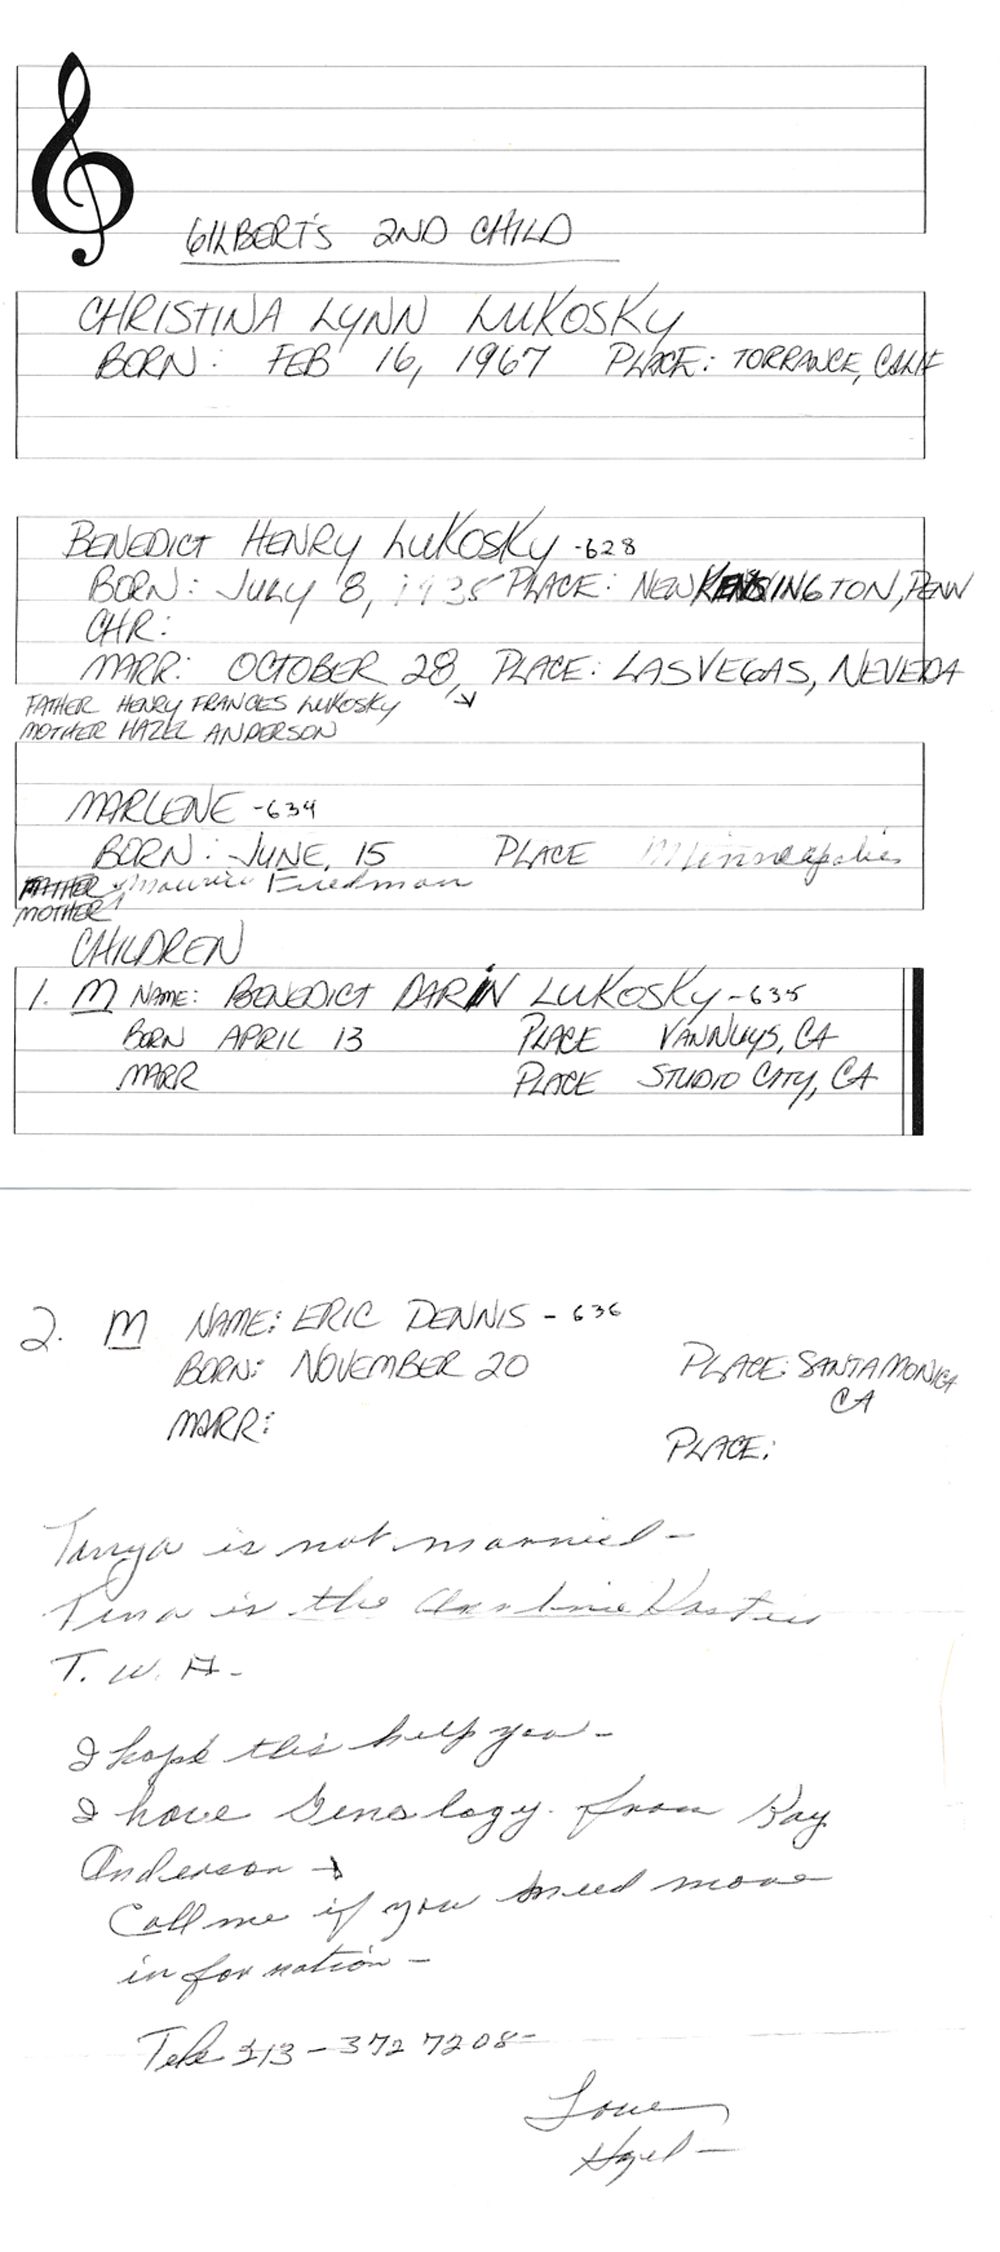 GILBERT'S 2ND CHILD
CHRISTINA LYNN LUKOSKY
BORN: FEB 16, 1967 PLACE: TORRANCE, CALIF
BENEDICT HENRY LUKOSKY -628
BORN: JULY 8, 1935 PLACE: NEW KENSINGTON, PENN
CHR:
MARR: OCTOBER 28, PLACE: LAS VEGAS, NEVEDA
FATHER HENRY FRANCES LUKOSKY
MOTHER HAZEL ANDERSON
MARLENE -634
BORN: JUNE, 15 PLACE Minneapolis
FATHER Maurice Friedman
MOTHER
CHILDREN
1. M NAME: BENEDICT DARIN LUKOSKY -635
BORN APRIL 13 PLACE VAN NUYS, CA
MARR PLACE STUDIO CITY, CA
2. M NAME: ERIC DENNIS - 636
BORN: NOVEMBER 20 PLACE: SANTA MONICA
CA
MARR:
PLACE:
Tanya is not married -
Tina is the
T. W. A. -
I hope this help you -
I have Genology. from Ray
Anderson -
Call me if you need more
information -
Tele 213 - 372 7208 -
Love
Hazel -